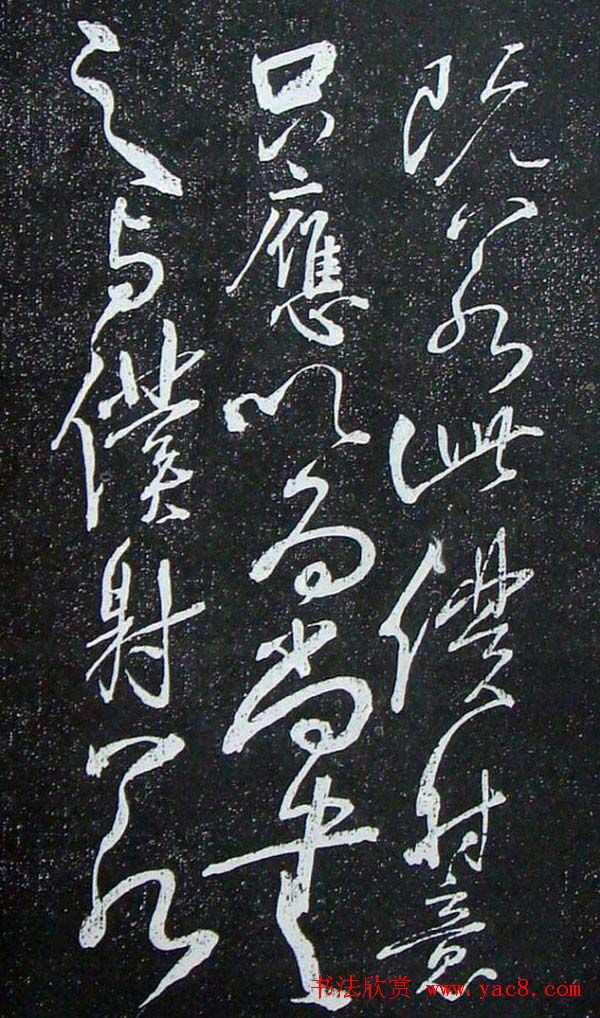 既若此僕射意
只應以為尚書
之与僕射若
书法欣赏 www.yac8.com